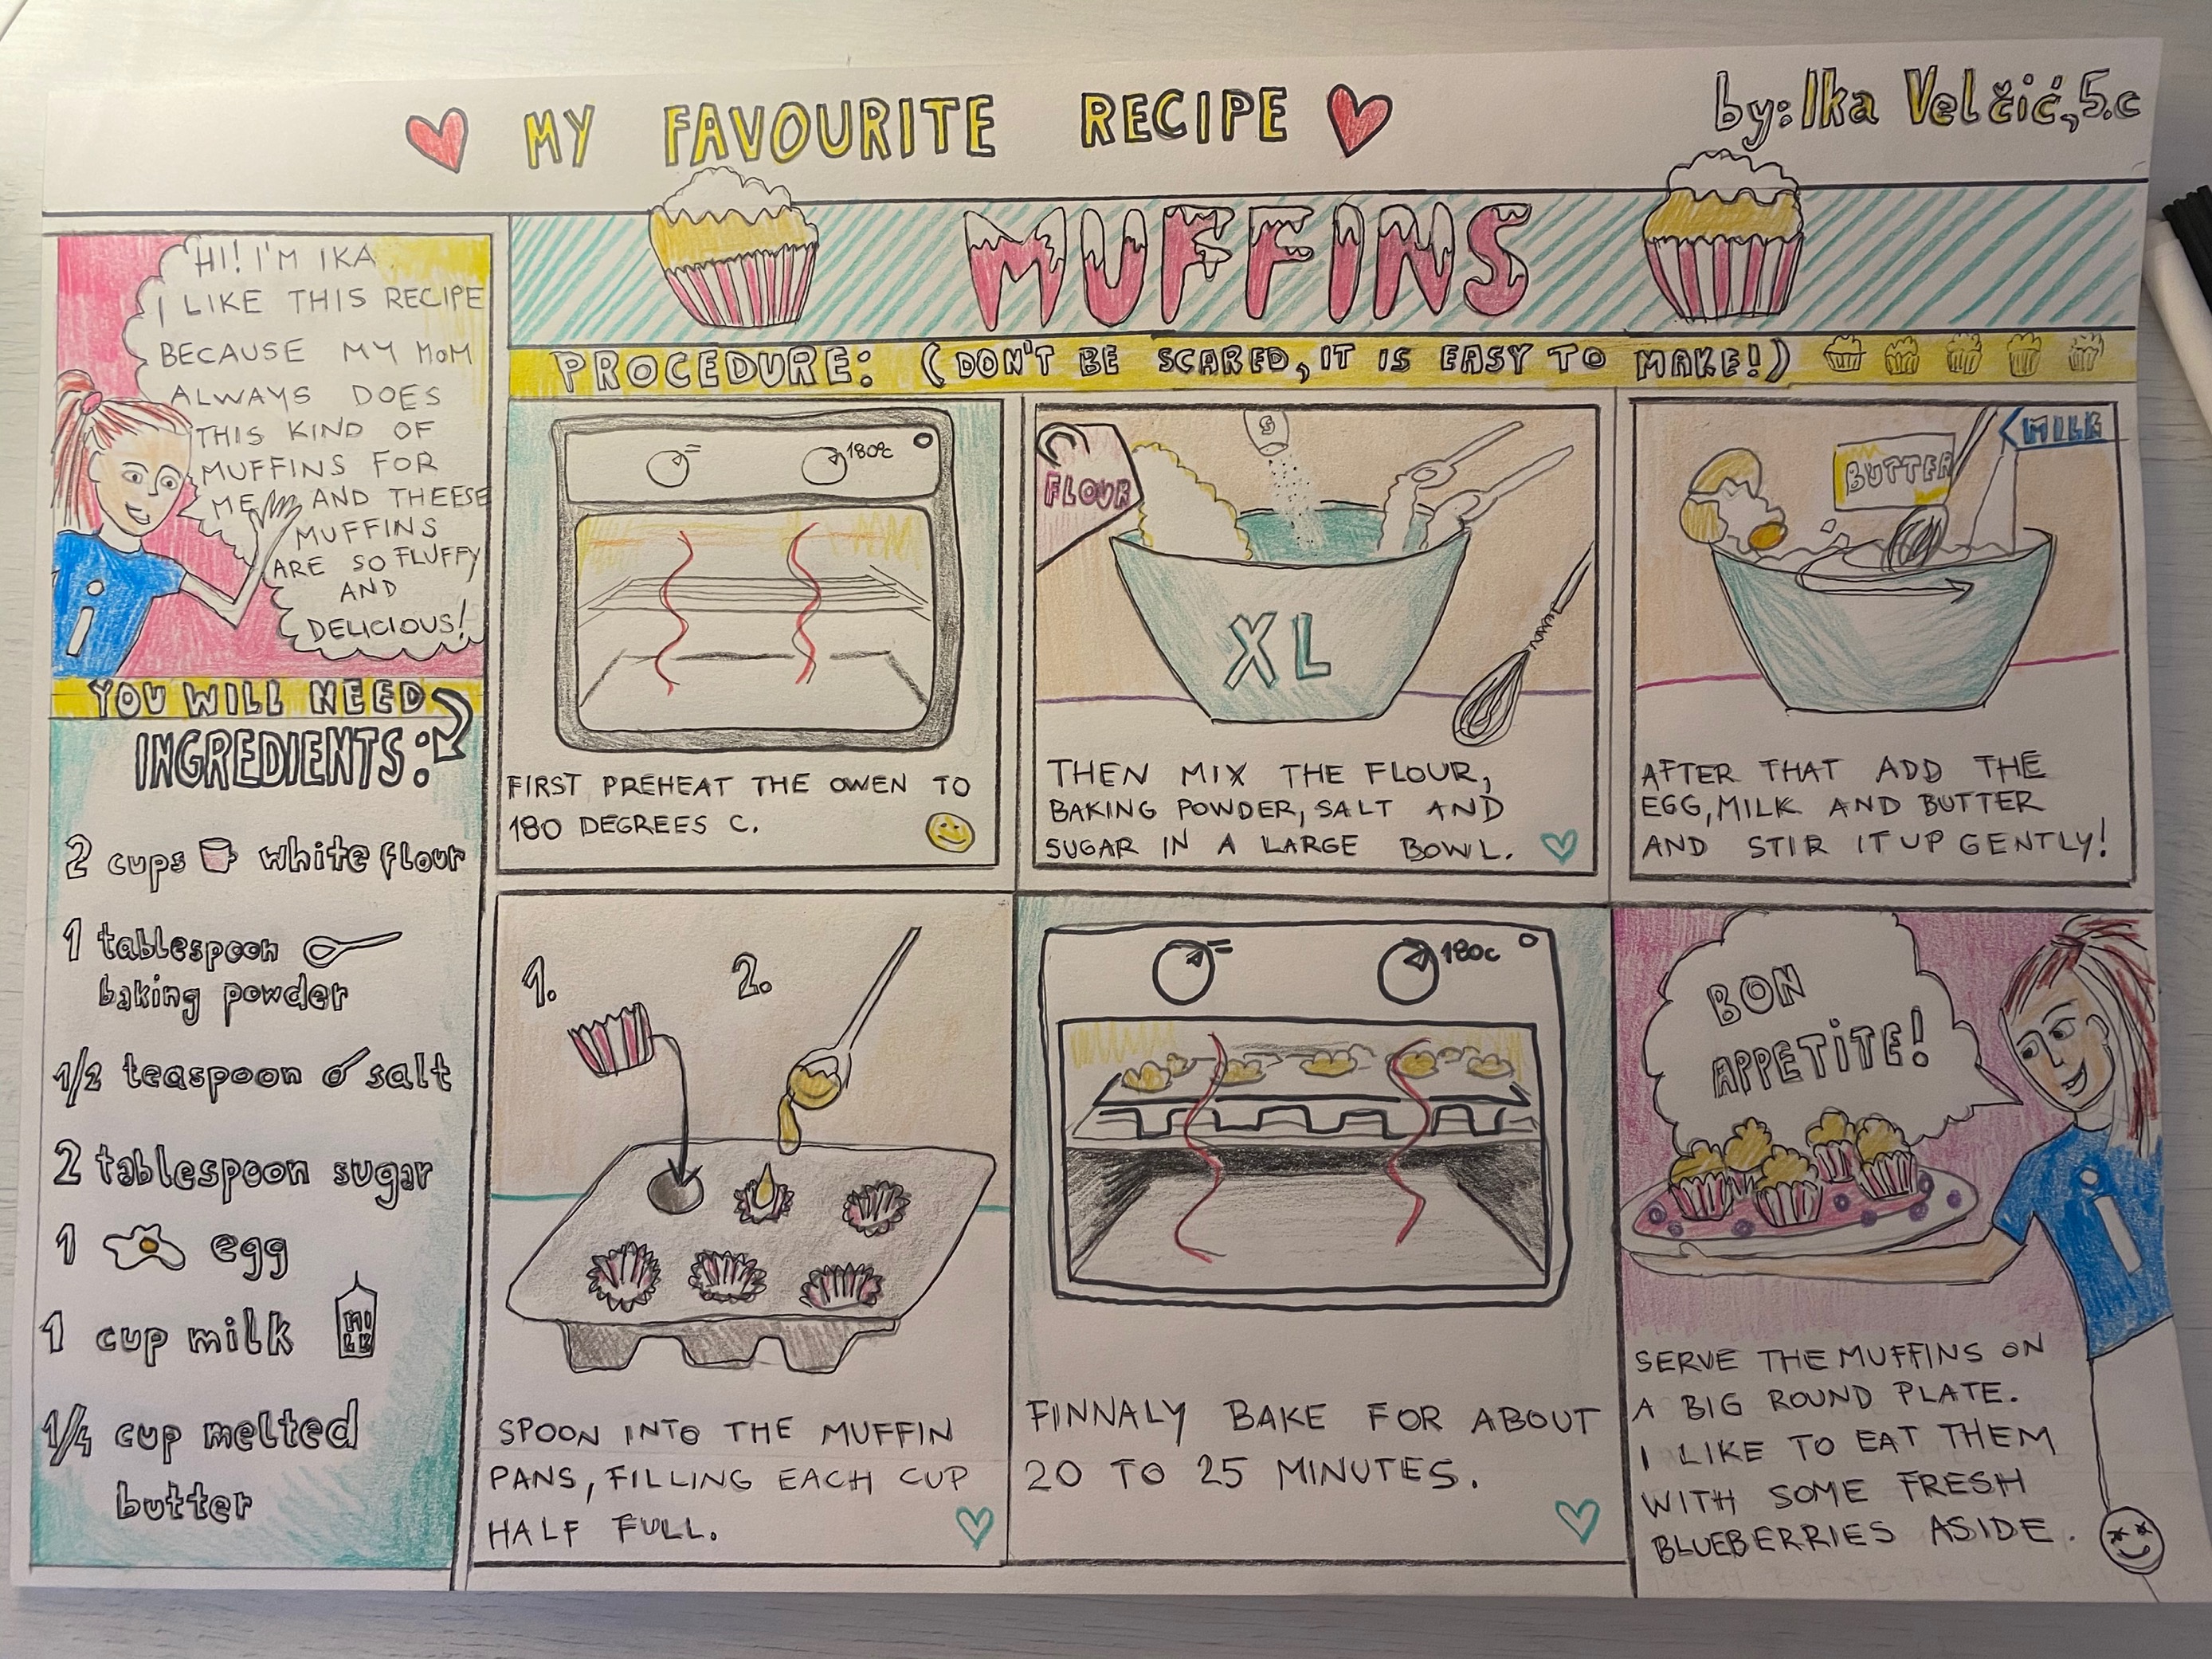 MY FAVOURITE RECIPE
by: Ika Velčić, 5.c
MUFFINS
HI! I'M IKA
I LIKE THIS RECIPE
BECAUSE MY MOM
ALWAYS DOES
THIS KIND OF
MUFFINS FOR
ME AND THEESE
MUFFINS
ARE SO FLUFFY
AND
DELICIOUS!
i
YOU WILL NEED
INGREDIENTS:
2 cups white flour
1 tablespoon
baking powder
1/2 teaspoon salt
2 tablespoon sugar
1 egg
1 cup milk
MILK
1/4 cup melted
butter
PROCEDURE: (DON'T BE SCARED, IT IS EASY TO MAKE!)
180°C
FIRST PREHEAT THE OWEN TO
180 DEGREES C.
S
FLOUR
XL
THEN MIX THE FLOUR,
BAKING POWDER, SALT AND
SUGAR IN A LARGE BOWL.
MILK
BUTTER
AFTER THAT ADD THE
EGG, MILK AND BUTTER
AND STIR IT UP GENTLY!
1. 2.
SPOON INTO THE MUFFIN
PANS, FILLING EACH CUP
HALF FULL.
180c
FINNALY BAKE FOR ABOUT
20 TO 25 MINUTES.
BON
APPETITE!
i
SERVE THE MUFFINS ON
A BIG ROUND PLATE.
I LIKE TO EAT THEM
WITH SOME FRESH
BLUEBERRIES ASIDE.